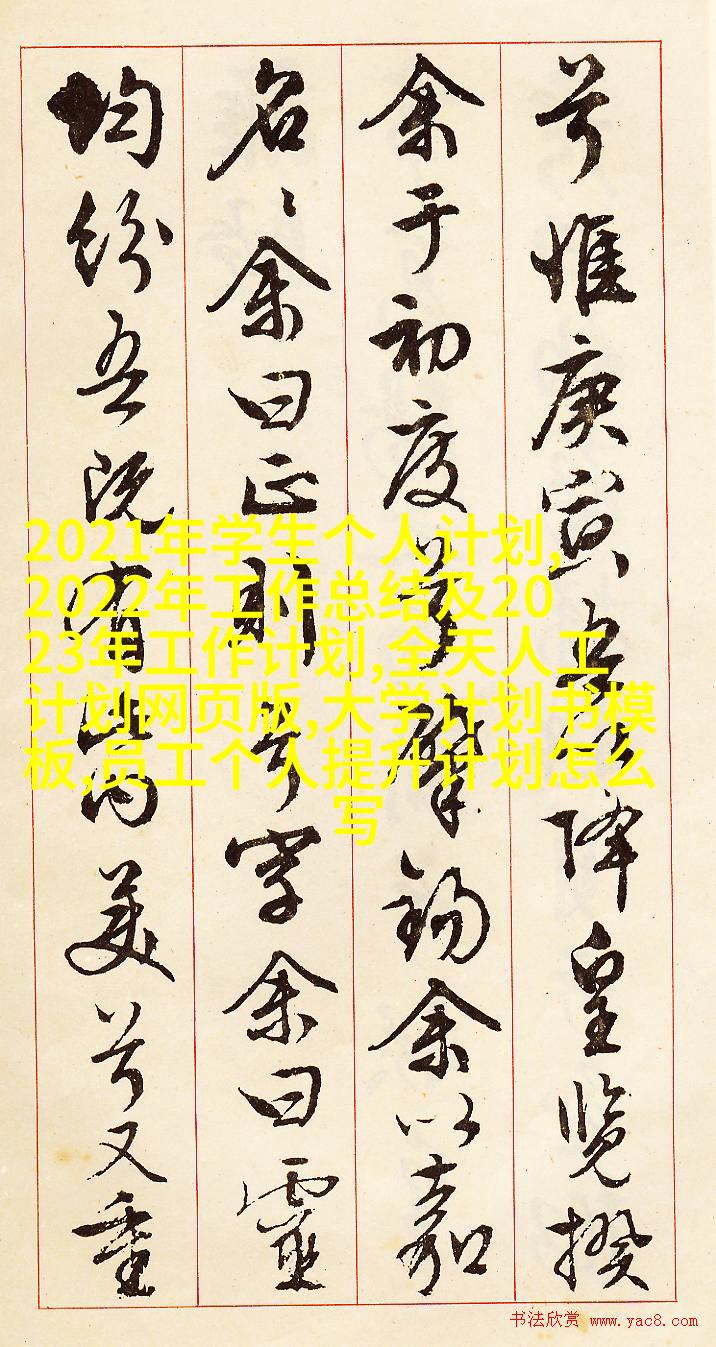 兮惟庚寅吾以降皇覽揆
余于初度兮肇錫余以嘉
名〻余曰正則兮字余曰靈
均紛吾既有此内美兮又重
2021年学生个人计划,
2022年工作总结及20
23年工作计划,全天人工
计划网页版,大学计划书模
板,员工个人提升计划怎么
写
书法欣赏 www.yac8.com